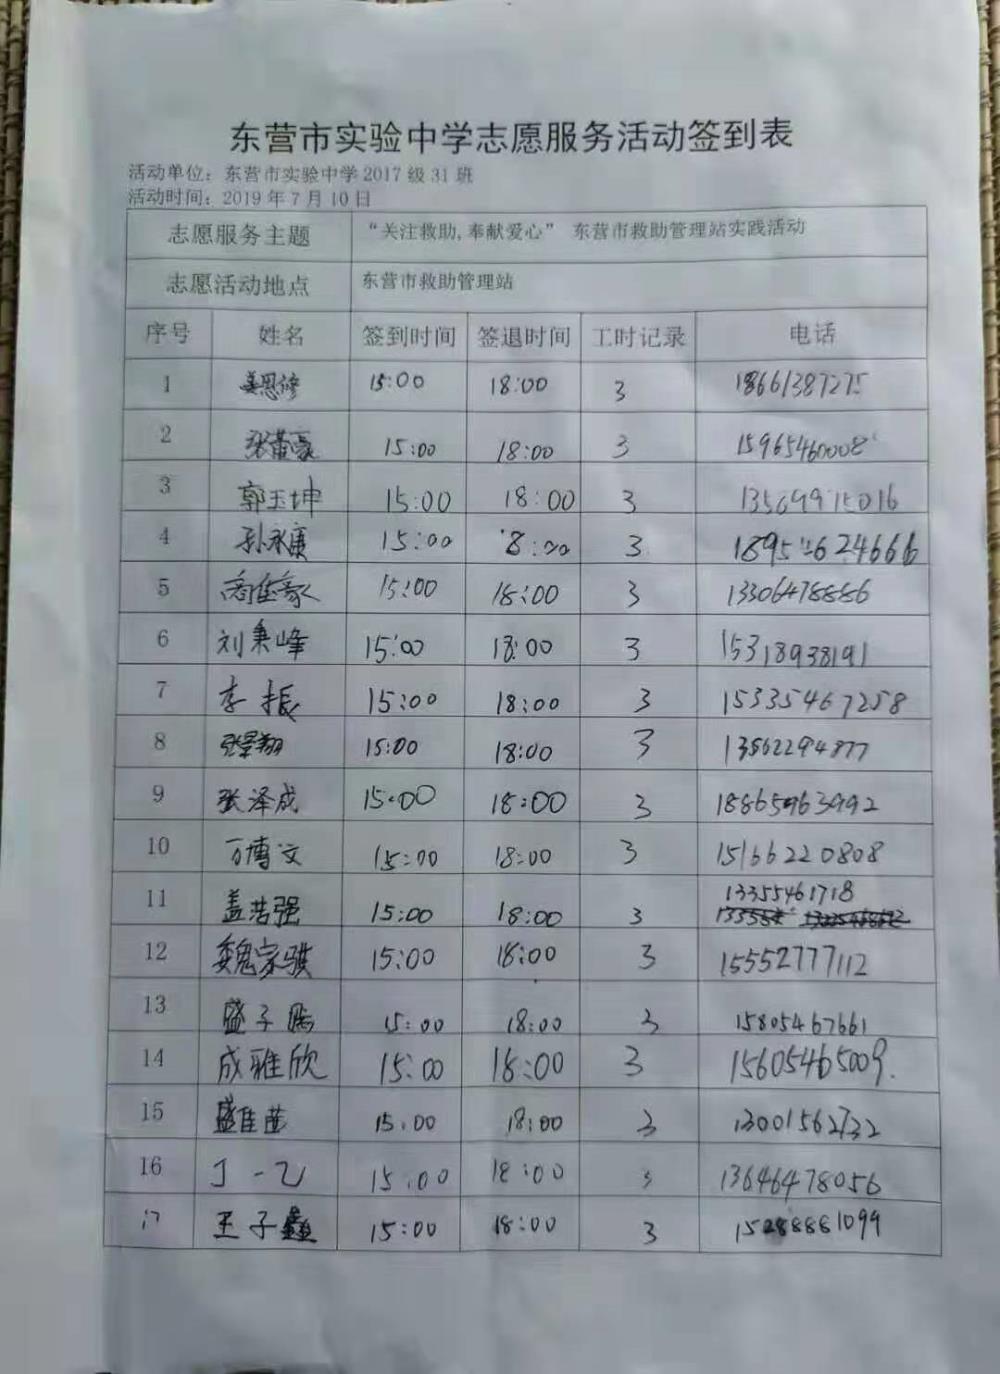 东营市实验中学志愿服务活动签到表
活动单位：东营市实验中学2017级31班
活动时间：2019年7月10日
志愿服务主题 “关注救助,奉献爱心” 东营市救助管理站实践活动
志愿活动地点 东营市救助管理站
序号 姓名 签到时间 签退时间 工时记录 电话
1 姜恩修 15:00 18:00 3 18661387275
2 15:00 18:00 3 15965460008
3 郭玉坤 15:00 18:00 3
4 孙永康 15:00 18:00 3
5 15:00 18:00 3 13306478886
6 刘秉峰 15:00 18:00 3 15318938191
7 李振 15:00 18:00 3 15335467258
8 张景翔 15:00 18:00 3 13562294877
9 张泽成 15:00 18:00 3 18865963992
10 万博文 15:00 18:00 3 15166220808
11 盖浩强 15:00 18:00 3 13355461718
12 魏家骥 15:00 18:00 3 15552777112
13 盛子 15:00 18:00 3 15805467661
14 成雅欣 15:00 18:00 3 15605465009.
15 盛佳 15:00 18:00 3 13001562732
16 丁一乙 15:00 18:00 3 13646478056
17 王子鑫 15:00 18:00 3 15288881099